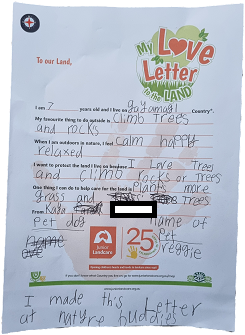 My Love
Letter
to the LAND
To our Land,
I am 7 years old and I live on gayamagl Country.
My favourite thing to do outside is climb trees
and rocks
When I am outdoors in nature, I feel calm happy
relaxed
I want to protect the land I live on because I Love trees
and climb rocks or trees
One thing I can do to help care for the land is plants more
grass and trees
From Kaya
pet dog name of
pet
reggie
Junior
Landcare
25
I made this Letter
at nature buddies